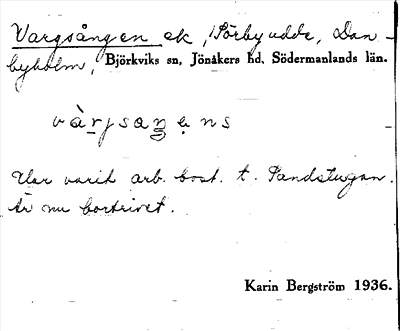 Vargsången ek, Pörbyudde, Dan-
byholm, Björkviks sn, Jönåkers hd, Södermanlands län.
vàrjsaŋens
Har varit arb. bost. t. Sandstugan.
Är nu bortrivet.
Karin Bergström 1936.